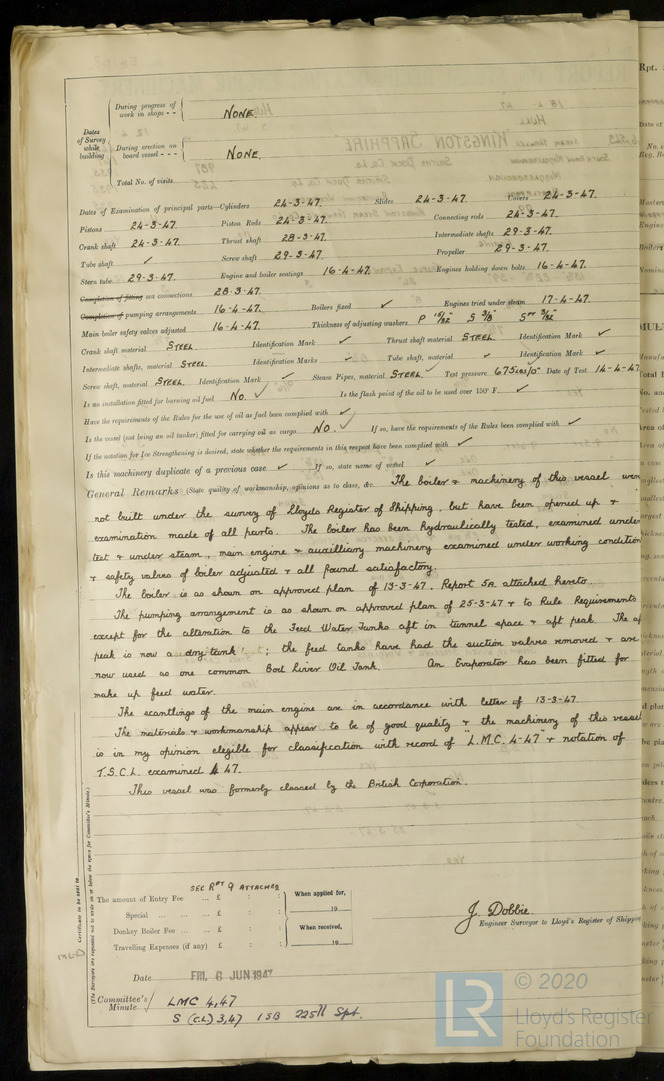 During progress of work in shops - - NONE.
Dates of Survey while building
During erection on board vessel - - - NONE.
Total No. of visits
Dates of Examination of principal parts—Cylinders 24-3-47. Slides 24-3-47. Covers 24-3-47.
Pistons 24-3-47. Piston Rods 24-3-47. Connecting rods 24-3-47.
Crank shaft 24-3-47. Thrust shaft 28-3-47. Intermediate shafts 29-3-47.
Tube shaft ✓ Screw shaft 29-3-47. Propeller 29-3-47.
Stern tube 29-3-47. Engine and boiler seatings 16-4-47. Engines holding down bolts 16-4-47.
Completion of fitting sea connections 28-3-47.
Completion of pumping arrangements 16-4-47. Boilers fixed ✓ Engines tried under steam 17-4-47.
Main boiler safety valves adjusted 16-4-47. Thickness of adjusting washers P 15/32" S 3/8"
Crank shaft material STEEL. Identification Mark ✓ Thrust shaft material STEEL. Identification Mark ✓
Intermediate shafts, material STEEL. Identification Marks ✓ Tube shaft, material ✓ Identification Mark ✓
Screw shaft, material STEEL. Identification Mark ✓ Steam Pipes, material STEEL ✓ Test pressure 675 lbs/□" Date of Test 14-4-47
Is an installation fitted for burning oil fuel NO. ✓ Is the flash point of the oil to be used over 150° F. ✓
Have the requirements of the Rules for the use of oil as fuel been complied with ✓
Is the vessel (not being an oil tanker) fitted for carrying oil as cargo NO. ✓ If so, have the requirements of the Rules been complied with ✓
If the notation for Ice Strengthening is desired, state whether the requirements in this respect have been complied with ✓
Is this machinery duplicate of a previous case ✓ If so, state name of vessel ✓
General Remarks (State quality of workmanship, opinions as to class, &c. The boiler & machinery of this vessel were
not built under the survey of Lloyds Register of Shipping, but have been opened up &
examination made of all parts. The boiler has been hydraulically tested, examined under
test & under steam, main engine & auxilliary machinery examined under working condition
& safety valves of boiler adjusted & all found satisfactory.
The boiler is as shown on approved plan of 13-3-47. Report 5A attached hereto.
The pumping arrangement is as shown on approved plan of 25-3-47 & to Rule Requirements
except for the alteration to the Feed Water Tanks aft in tunnel space & aft peak. The af
peak is now a dry tank; the feed tanks have had the suction valves removed & are
now used as one common Cod Liver Oil Tank. An Evaporator has been fitted for
make up feed water.
The scantlings of the main engine are in accordance with letter of 13-3-47.
The materials & workmanship appear to be of good quality & the machinery of this vessel
is in my opinion eligible for classification with record of "L.M.C. 4-47" & notation of
T.S.C.L. examined 4.47.
This vessel was formerly classed by the British Corporation.
Certificate to be sent to
(The Surveyors are requested not to write on or below the space for Committee's Minute.)
SEE RPT 9 ATTACHED
The amount of Entry Fee ... £ : : When applied for,
Special ... ... £ : : 19
Donkey Boiler Fee ... ... £ : : When received,
Travelling Expenses (if any) £ : : 19
J. Dobbie.
Engineer Surveyor to Lloyd's Register of Shipping
Date FRI. 6 JUN 1947
Committee's Minute LMC 4,47
S (CL) 3,47 1SB 225 lb Spt.
LR
© 2020
Lloyd's Register
Foundation